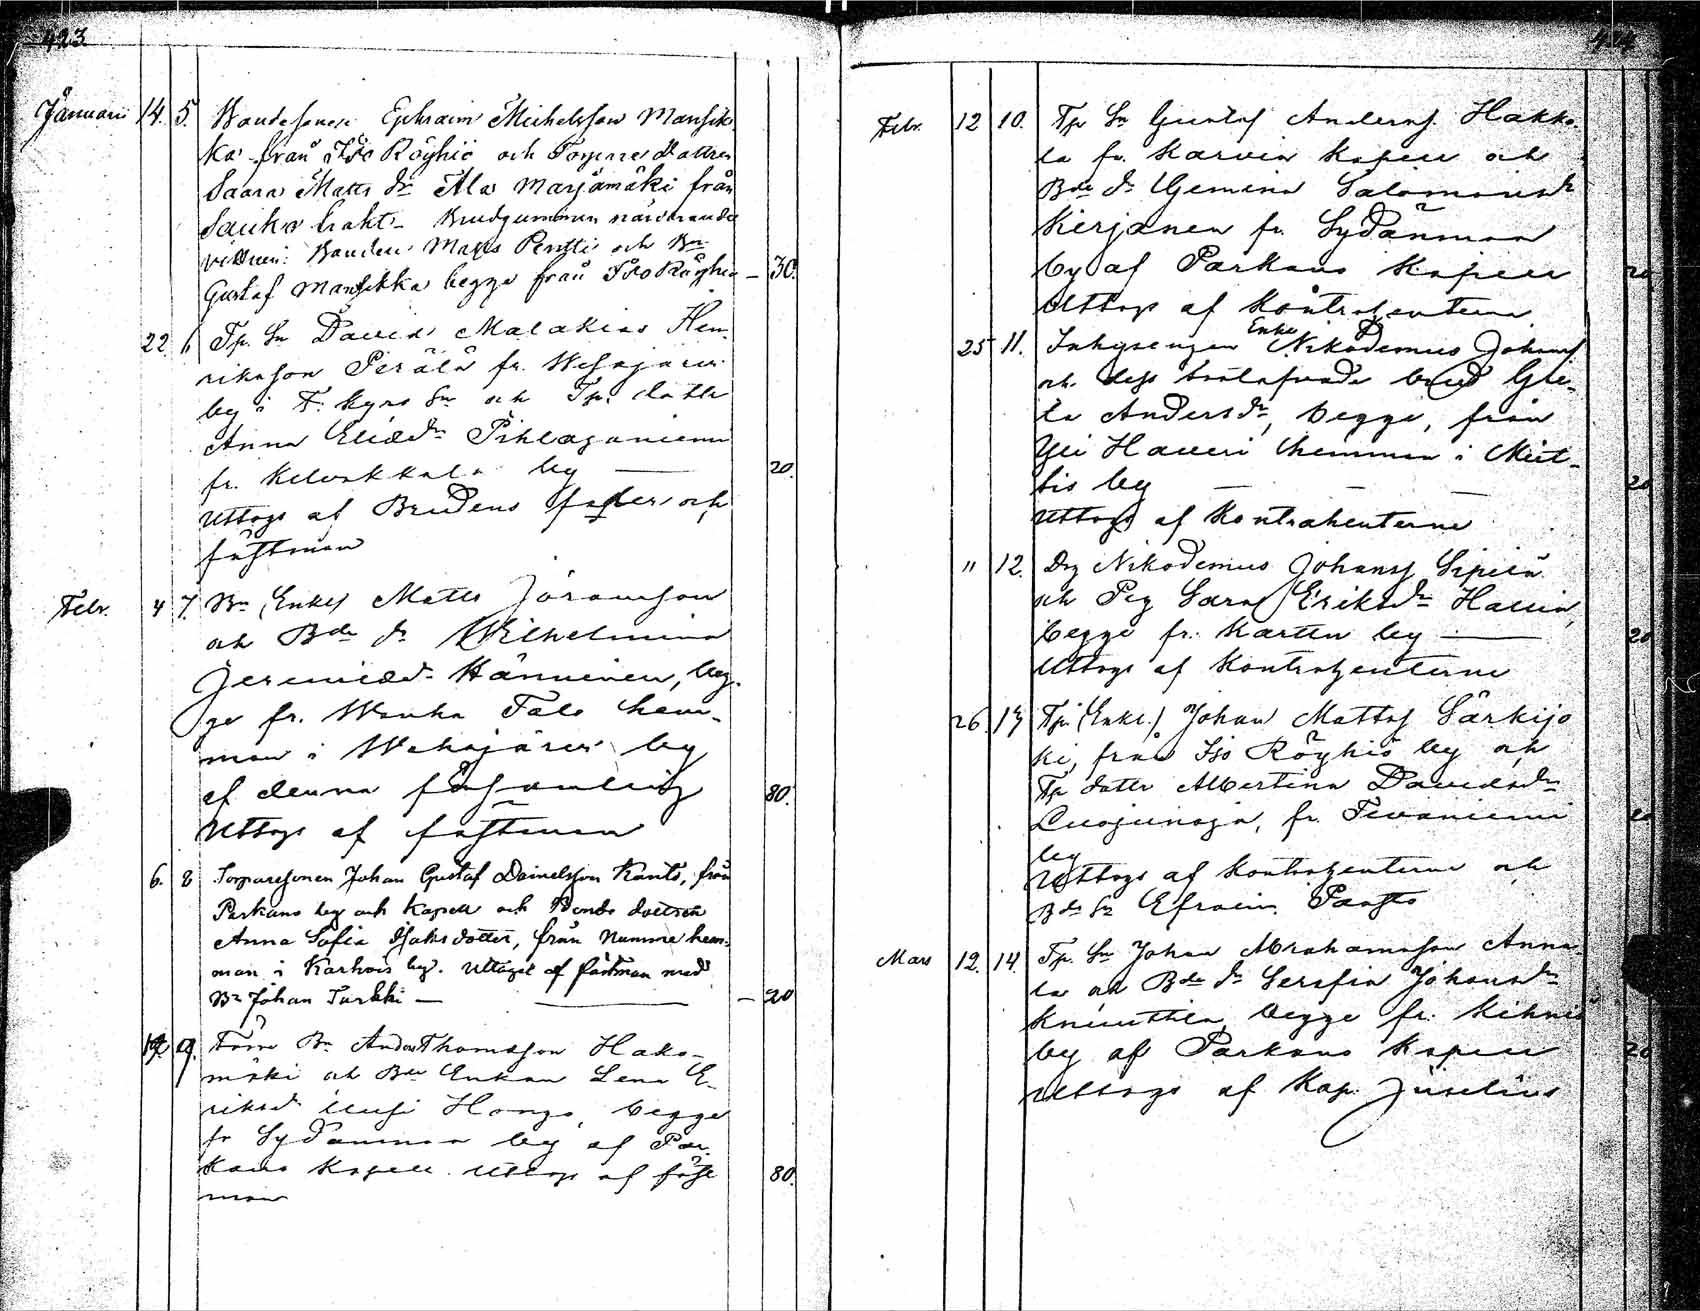 423
Januari 14. 5. Bondesonen Ephraim Michelsson Mansik-
ka från Iso Röyhiö och Torpare Dottren
Saara Matts dr Ala Marjamäki från
Sauko trakt - Brudgummen närvarande
vittnen: Bonden Matts Pentti och Bn
Gustaf Mansikka begge från Iso Röyhiö — 30.
22 6 Tp. Sn David Malakias Hen-
riksson Perälä fr. Wehajärvi
by i T. Kyro Sn och Tp. dottr
Anna Eliædr Pihlajaniemi
fr. Kelvakkala by — 20.
Uttogs af Brudens fader och
fästman
Febr. 4 7. Bn (Enkl) Matts Jöransson
och Bde dr Wilhelmina
Jeremiædr Hänninen, beg-
ge fr. Wanha Talo hem-
man i Wehajärvi by
af denna församling 80.
Uttogs af fästman
6. 8 Torparesonen Johan Gustaf Danielsson Kanto, från
Parkano by och Kapell och Bonde dottren
Anna Sofia Isaksdotter, från Numme hem-
man i Karhois by. Uttaget af fästman med
Bn Johan Turkki — — 20
12 9. Förre Bn Anders Thomasson Hako-
mäki och Bde Enkan Lena E-
riksdr Uusi Hongo, begge
fr Sydänmaa by af Par-
kano Kapell. Uttogs af fäst 80.
man
424
Febr. 12 10. Tp Sn Gustaf Andersf. Hakko-
la fr. Karvia Kapell och
Bde dr Gemina Salomonsdr
Kierjanen fr. Sydänmaa
by af Parkano Kapell 20
Uttogs af Kontrahenterna
25 11. Inhysengen Enkl Nikodemus Johansf.
och dess trolofvade brud Gre-
ta Andersdr, begge, från
Yli Haveri hemman i Miet-
tis by — — — 20
Uttogs af Kontrahenterna
" 12. Drg Nikodemus Johansf Sipilä
och Pig Sara Eriksdr Hallia,
begge fr. Karttu by — 20
Uttogs af Kontrahenterne
26 13 Tp. (Enkl.) Johan Mattsf Särkijo
ki, från Iso Röyhiö by och
Tp dottr Albertina Davidsdr
Luojunoja, fr. Tevaniemi 20
by
Uttogs af Kontrahenterna och
Bde Sn Efraim Pantto
Mars 12. 14. Tp. Sn Johan Abrahamsson Anna-
la och Bde dr Serafia Johansdr
Knuuttila, begge fr. Kihniö
by af Parkano Kapell 20
Uttogs af Kap. Juselius